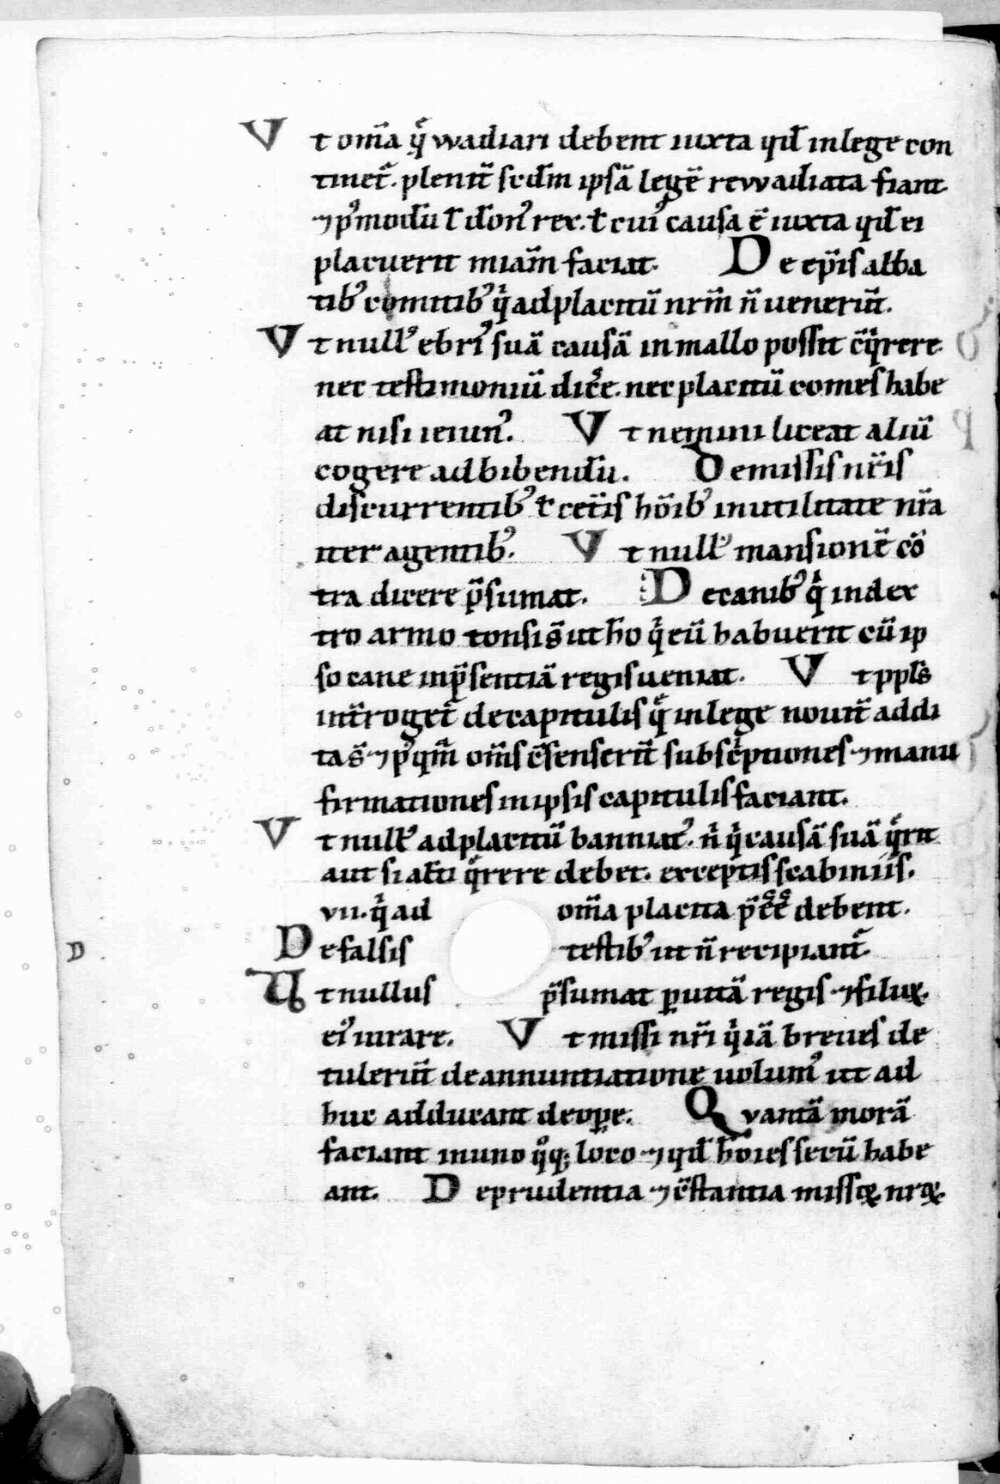 Vt om̄a q̄ wadiari debent iuxta qd̄ in lege con
tinet᷑. plenit̄ scdm̄ ipsā legē rewadiata fiant.
⁊ p᷒modū ł don᷒ rex. ł cui᷒ causa ē iuxta qd̄ ei
placuerit miam̄ faciat. De ep̄is abba
tib᷒ comitib᷒ q̇ ad placitū nr̄m n̄ uenerūt.
Vt null᷒ ebri᷒ suā causā in mallo possit c̄q̇rere.
nec testimoniū dic̄e. nec placitū comes habe
at nisi ieiun᷒. Vt nemini liceat aliū
cogere ad bibendū. De missis nr̄is
discurrentib᷒ ł cet̄is hōib᷒ in utilitate nr̄a
iter agentib᷒. Vt null᷒ mansionē cō
tra dicere p̄sumat. De canib᷒ q̇ in dex
tro armo tonsi s̄ ut hō q̇ eū habuerit cū ip
so cane in p̄sentiā regis ueniat. Vt ppl̄s
int̄roget᷑ de capitulis q̄ in lege nouit̄ addi
ta s̄ ⁊ p᷒qm̄ om̄s c̄senserit̄ subsċptiones ⁊ manu
firmationes in ipsis capitulis faciant.
Vt null᷒ ad placitū banniat᷑. n̄ q̇ causā suā q̄rit
aut si alt̄i q̄rere debet. exceptis scabiniis.
vii. q̇ ad om̄a placita p̄cc̄e debent.
D De falsis testib᷒ ut n̄ recipiant᷑.
Vt nullus p̄sumat ꝑ uitā regis ⁊ filioꝝ
ei᷒ iurare. Vt missi nr̄i q̇ iā breues de
tulerūt de annuntiatione uolum᷒ ut ad
huc adducant de oꝑe. Quantā morā
faciant in uno q̊q; loco ⁊ qd̄ hōies secū habe
ant. De prudentia ⁊ c̄stantia missoꝝ nr̄oꝝ.